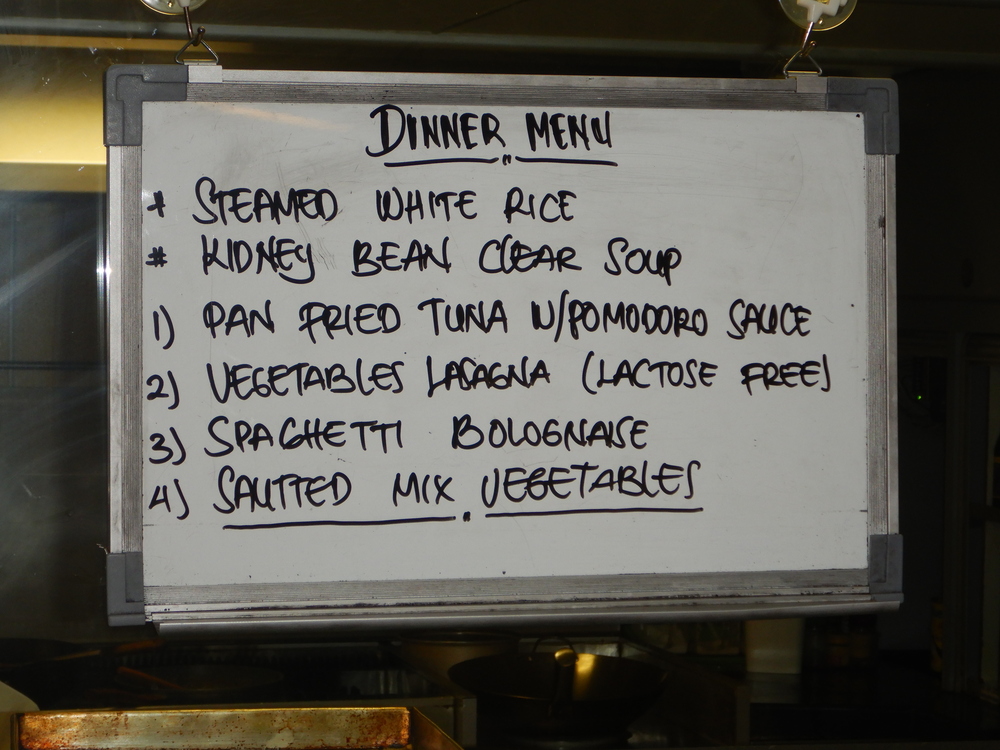 DINNER MENU
* STEAMED WHITE RICE
* KIDNEY BEAN CLEAR SOUP
1) PAN FRIED TUNA W/POMODORO SAUCE
2) VEGETABLES LASAGNA (LACTOSE FREE)
3) SPAGHETTI BOLOGNAISE
4) SAUTTED MIX VEGETABLES